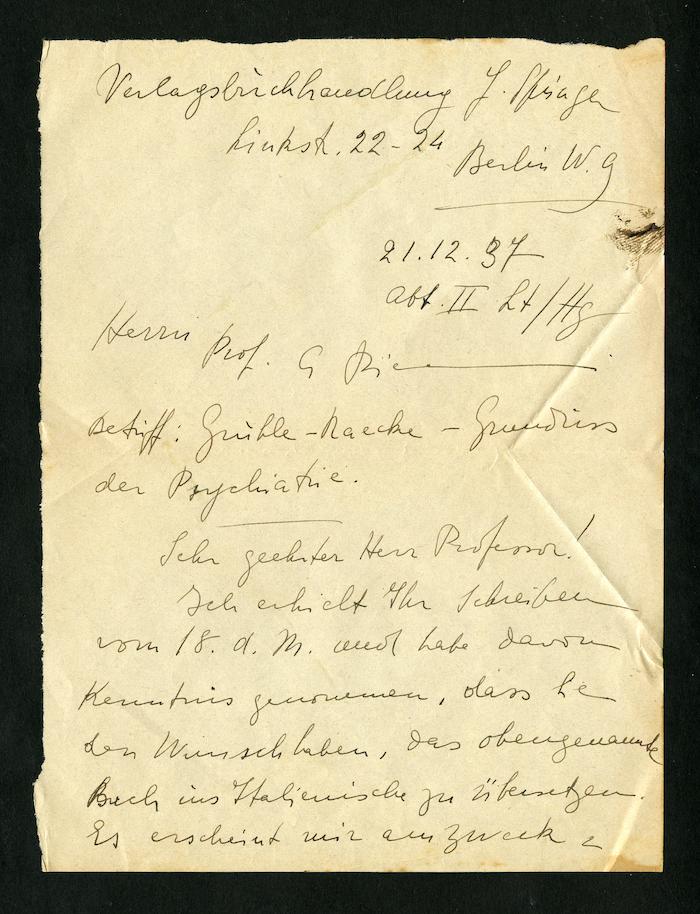 Verlagsbuchhandlung J. Springer
Linkstr. 22-24
Berlin W. 9
21.12.37
Abt. II Lt/Hg
Herrn
Prof. G
Betriff: Gruhle-Raecke - Grundriss
der Psychiatrie.
Sehr geehrter Herr Professor!
Ich erhielt Ihr Schreiben
vom 18. d. M. und habe davon
Kenntnis genommen, dass Sie
den Wunsch haben, das obengenannte
Buch ins Italienische zu übersetzen.
Es erscheint mir am zweck